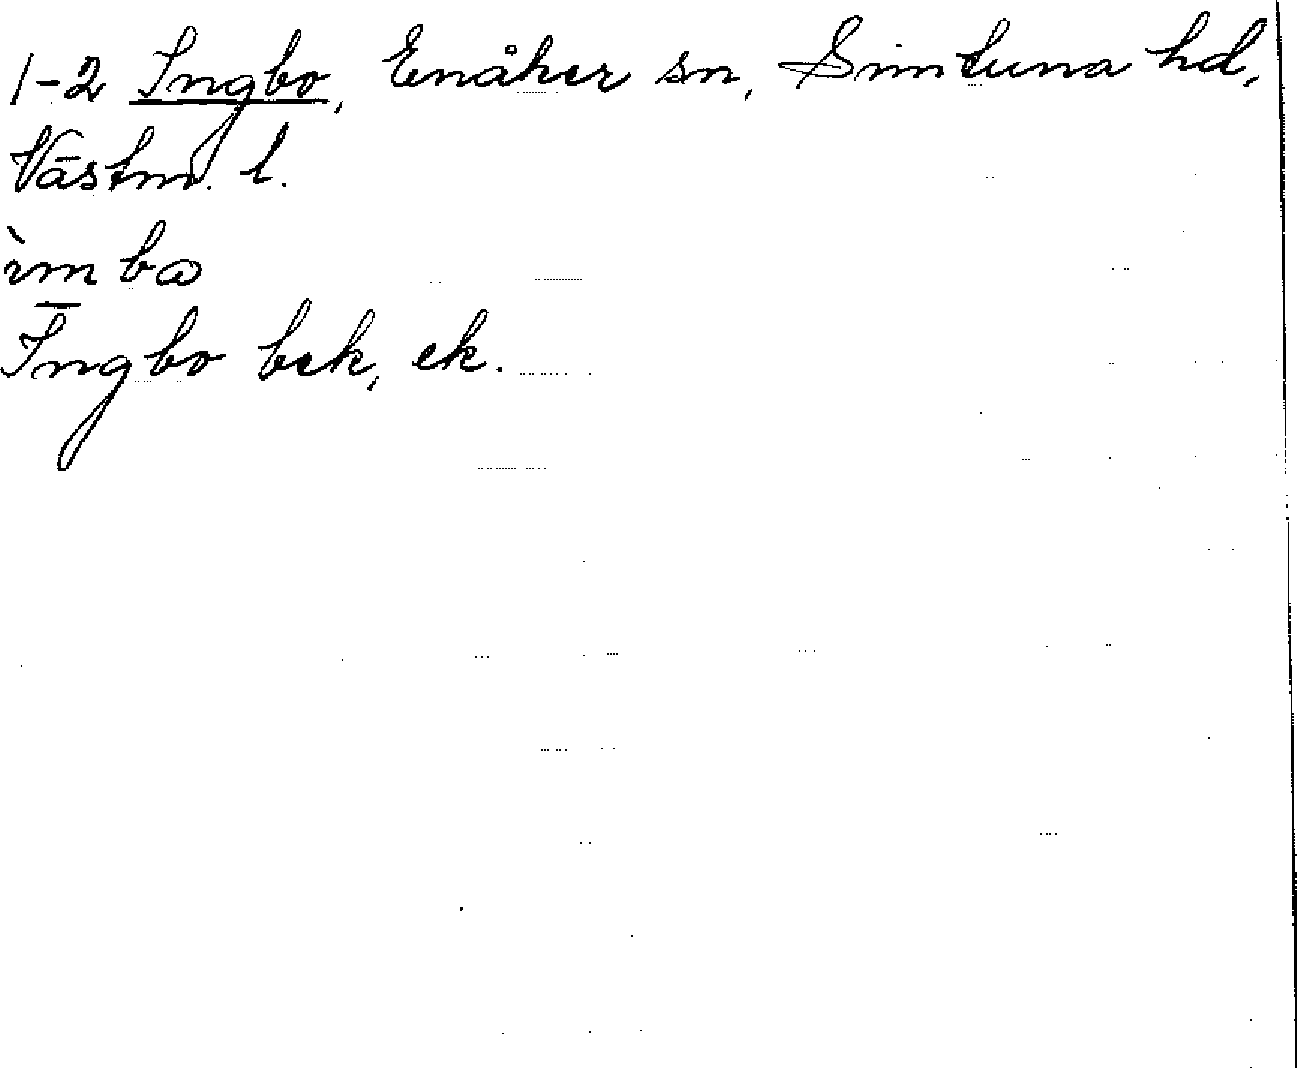 1-2 Ingbo, Enåker sn, Simtuna hd,
Västm. l.
ìmbω
Ingbo bek, ek.